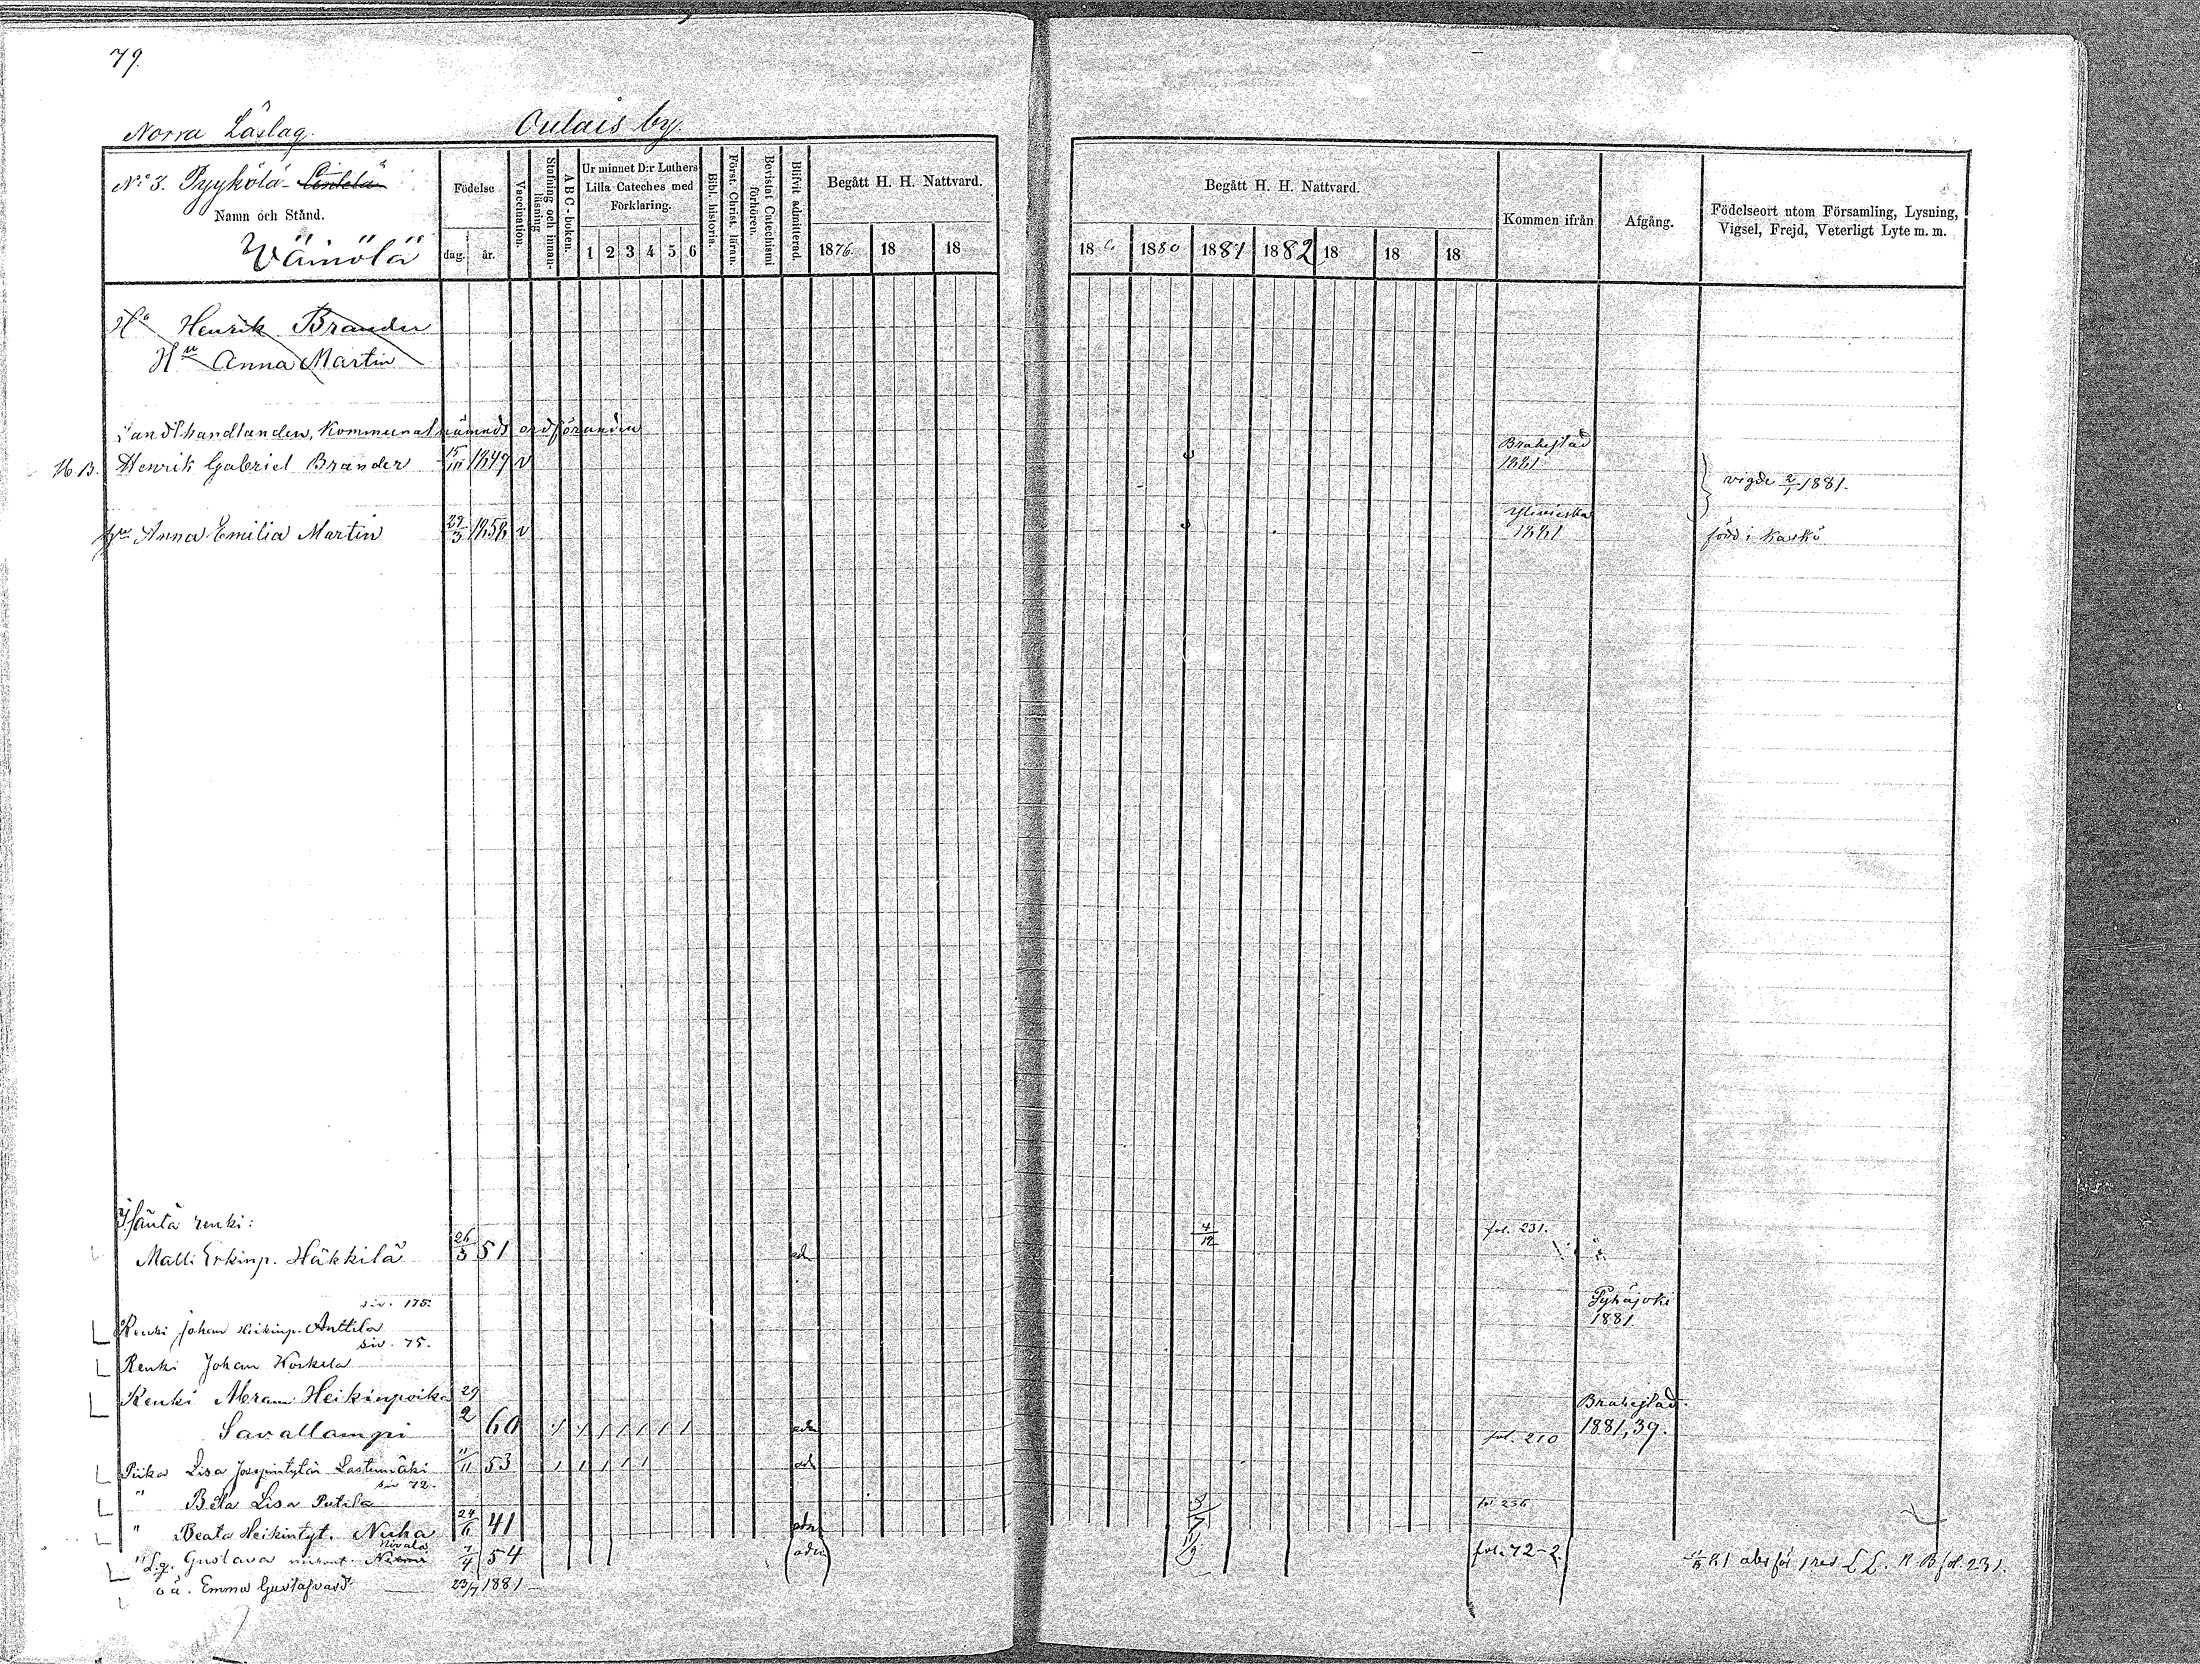 79.
Norra Läslag. Oulais by.
No 3. Pyykölä
Namn och Stånd.
Wäinölä
Födelse
dag. år.
Vaccination.
Stafning och innanläsning
A B C-boken.
Ur minnet D:r Luthers
Lilla Cateches med
Förklaring.
1 2 3 4 5 6
Bibl. historia.
Först. Christ. läran.
Bevistat Catechismi förhören.
Blifvit admitterad.
Begått H. H. Nattvard.
1876. 18 18
Begått H. H. Nattvard.
18 1880 1881 1882 18 18 18
Kommen ifrån
Afgång.
Födelseort utom Församling, Lysning,
Vigsel, Frejd, Veterligt Lyte m. m.
Henrik Brander
Hu Anna Martin
Landthandlanden, Kommunalnämnds ordföranden
H. B. Henrik Gabriel Brander 15/III 1849 v Brahestad 1881
vigde 2/1 1881.
Hu Anna Emilia Martin 29/3 1858 v Ylivieska 1881 född i Kaskö
Isäntä renki: fol. 231.
Matti Erkinp. Häkkilä 26/3 51 adm 4/12
siv. 175.
Renki Johan Heikinp. Anttila Pyhäjoki 1881
siv. 75.
Renki Johan Korkela
Renki Abram Heikinpoika 29/2
Savallampi 60 adm fol. 210 Brahestad 1881, 39.
Piika Lisa Josepintytär Lastumäki 11/11 53 adm
siv 72.
" Beta Lisa Putila fol 236
" Beata Heikintyt. Nuha 24/6 41 adm
Nivala
" Gustava 7/4 54 adm fol. 72-2.
o ä. Emma Gustafva 23/7 1881
81 abs för L L. N. B fol. 231.